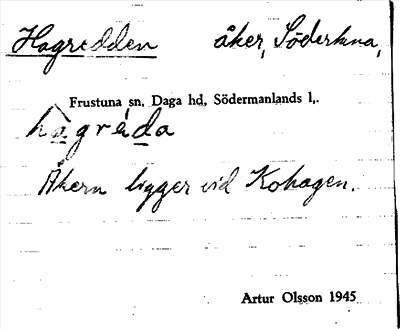 Hagredden åker, Södertuna,
Frustuna sn, Daga hd, Södermanlands l,.
hagréda
Åkern ligger vid Kohagen.
Artur Olsson 1945